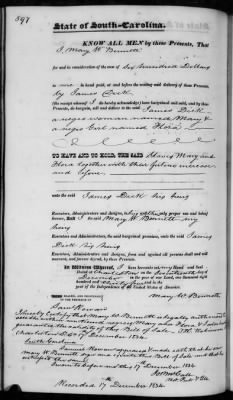 597
State of South-Carolina.
KNOW ALL MEN by these Presents, That
I Mary W Bennett
for and in consideration of the sum of Six hundred Dollars
to me in hand paid, at and before the sealing and delivery of these Presents,
by James Derk
(the receipt whereof I do hereby acknowledge) have bargained and sold, and by these
Presents, do bargain, sell and deliver to the said James Derk
a negro woman named Mary &
a negro Girl named Flora
TO HAVE AND TO HOLD, THE SAID Slaves Mary and
Flora together with their future increase
and before
unto the said James Derk his heirs
Executors, Administrators and Assigns, to his and their only proper use and behoof
forever. And I the said Mary W Bennett my
heirs
Executors and Administrators, the said bargained premises, unto the said James
Derk his heirs
Executors, Administrators and Assigns, from and against all persons shall and will
warrant, and forever defend, by these Presents.
In Witness Whereof, I have hereunto set my Hand and Seal
Dated at Charleston on the Seventeenth day of
December in the year of our Lord one thousand eight
hundred and thirty four and in the
year of the Independence of the United States of America.
Mary W Bennett
SIGNED, SEALED, AND DELIVERED
IN THE PRESENCE OF
I hereby Certify that Mary W Bennett is legally authorized to
sell the within mentioned negroes Mary and Flora &
guarantee the
Charleston Dec 17 December 1834.
South Carolina
appeared & made oath that he saw
Mary W Bennett sign and execute this Bill of Sale and that he
witnessed the same
Sworn to before me the 17 December 1834
Recorded 17th December 1834.